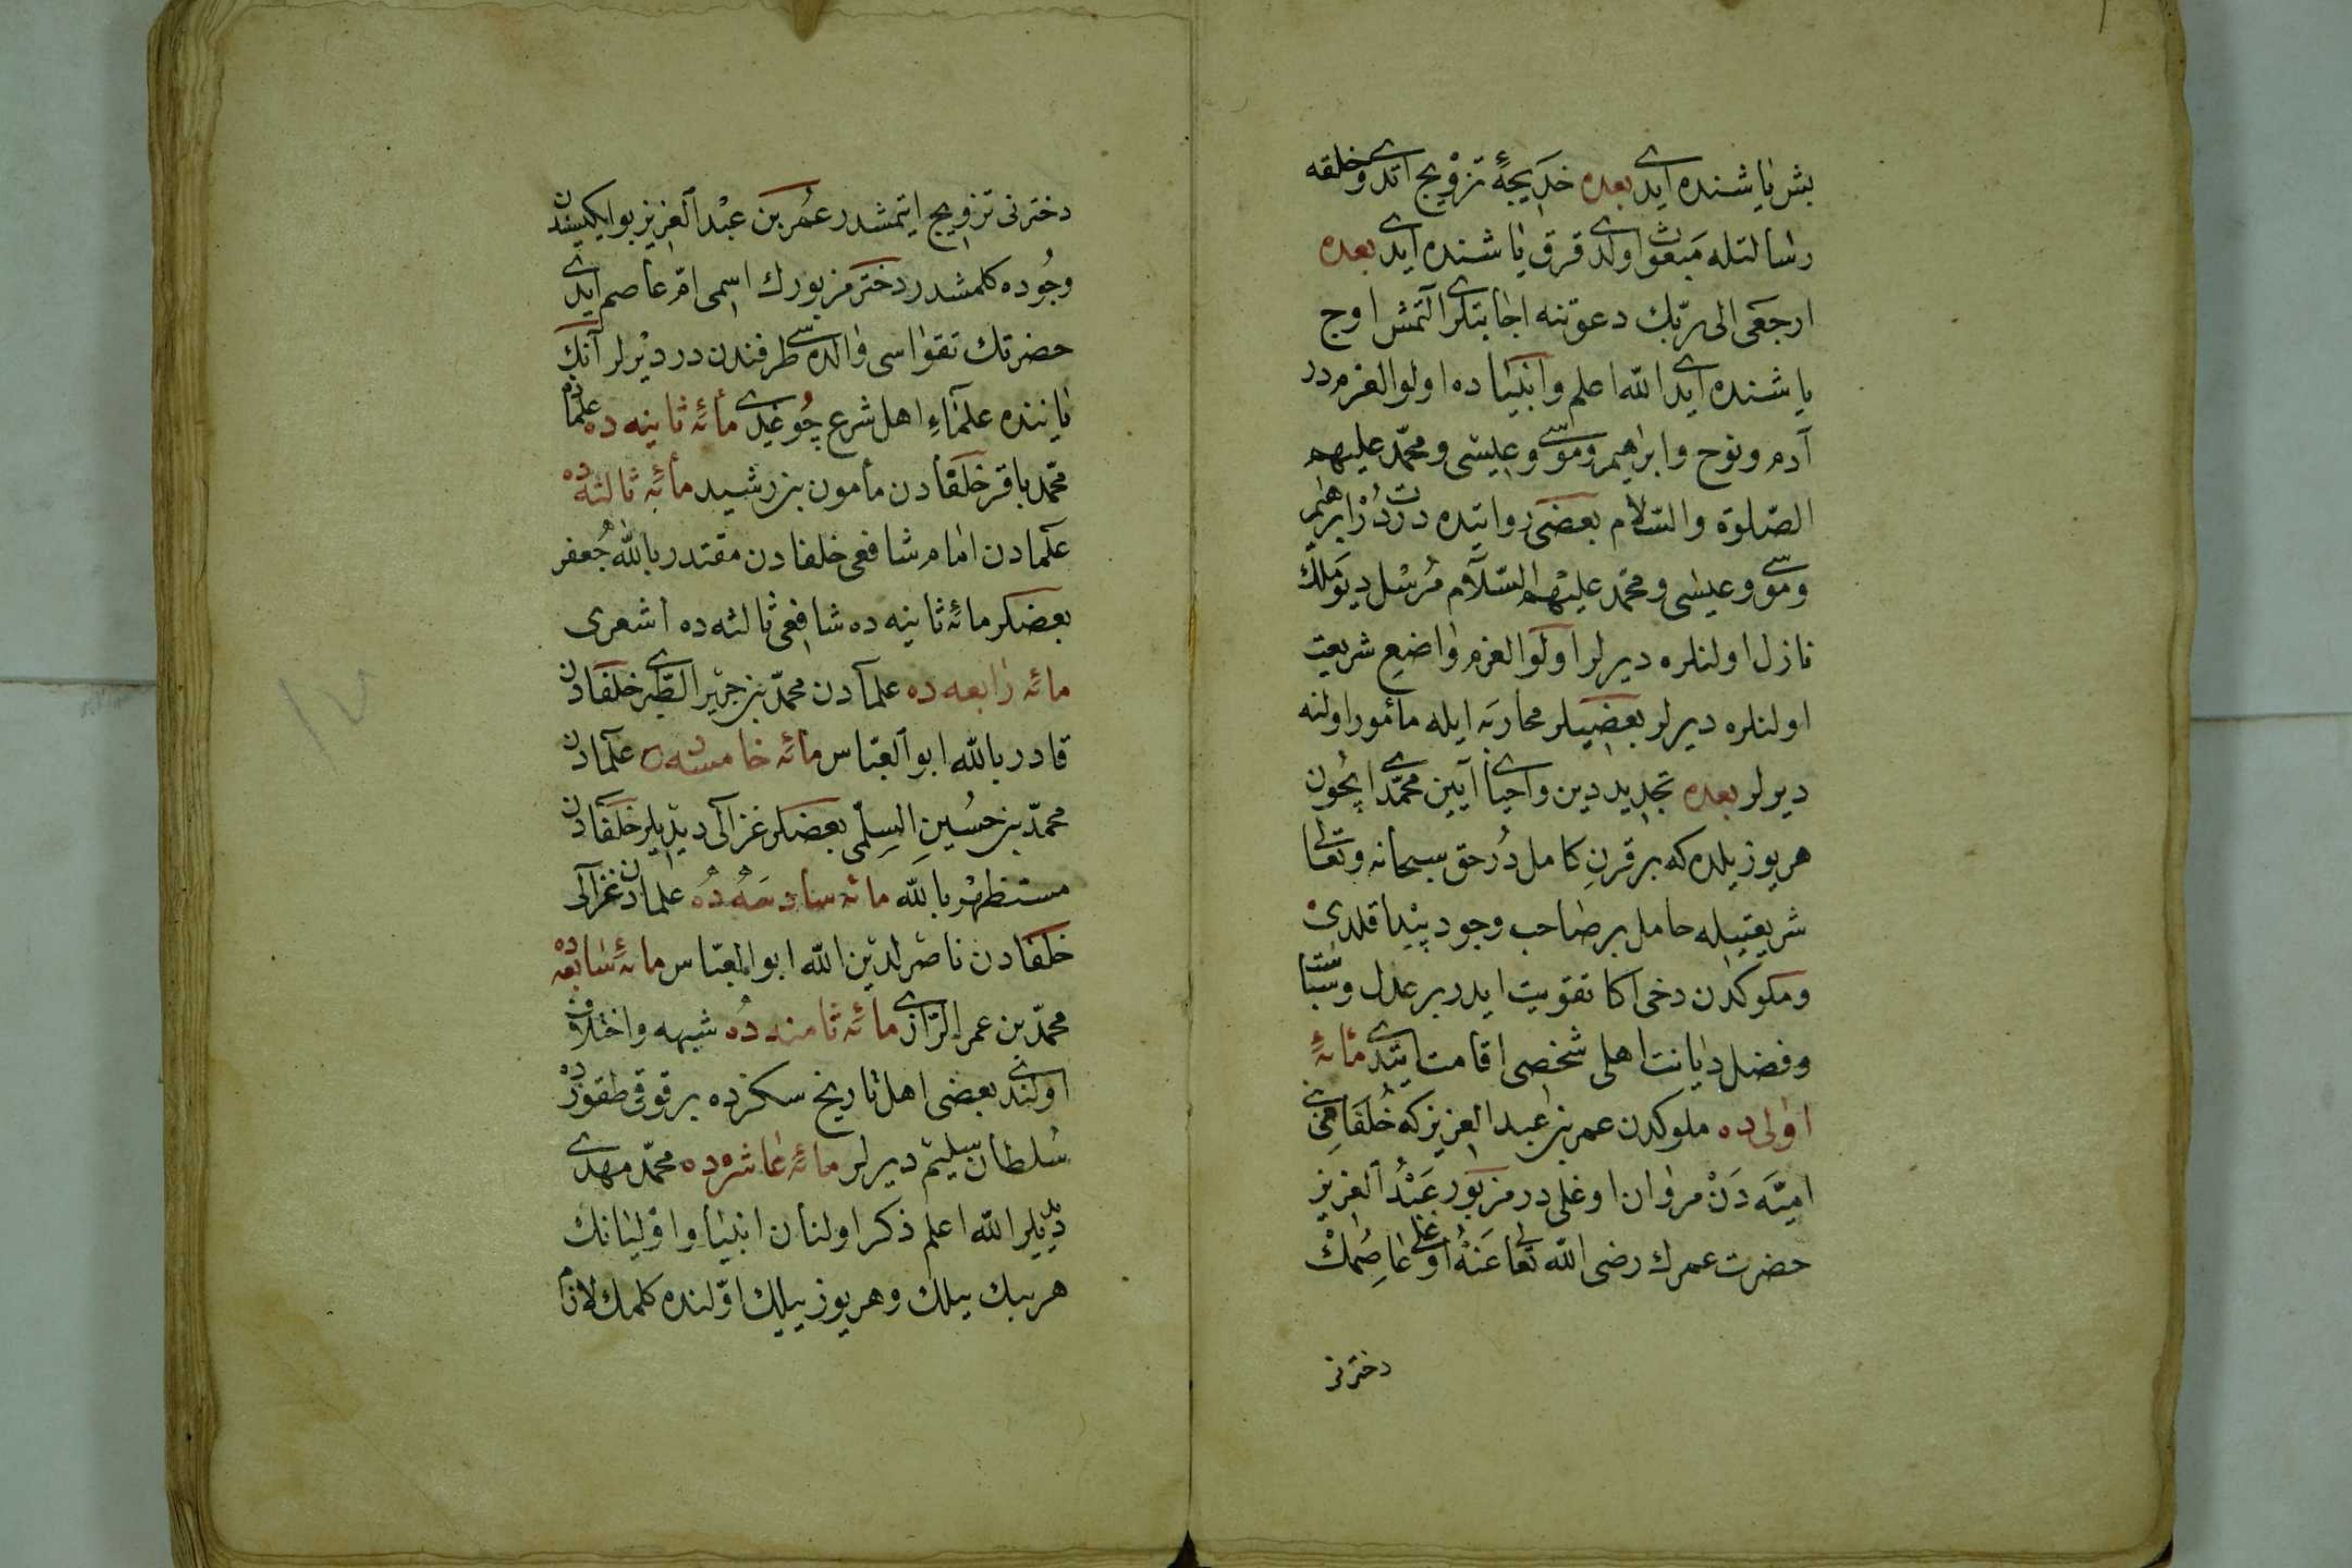 بش ياشنده ايدى بعده خديجه‌ئ تزويج اتدى وخلقه
رسالتله مبعوث اولدى قرق ياشنده ايدى بعده
ارجعى الى ربّك دعوتنه اجابتلرى آلتمش اوچ
ياشنده ايدى الله اعلم وانبيا ده اولوالعزم در
آدم ونوح وابراهيم وموسى وعيسى ومحمّد عليهم
الصّلوة والسّلام بعضى روايتده درت در ابراهيم
وموسى وعيسى ومحمّد عليهم السّلام مرسل ديو ملك
نازل اولنلره ديرلر اولوالعزم واضع شريعت
اولنلره ديرلر بعضيلر محاربه ايله مأمور اولنه
ديرلر بعده تجديد دين واحياى آيين محمّدى ايچون
هر يوز يلده كه بر قرن كامل در حق سبحانه وتعالى
شريعتيله حامل بر صاحب وجود پيدا قلدى
وملوكدن دخى اكا تقويت ايدر بر عدل وسياست
وفضل ديانت اهلى شخصى اقامت ايتدى مائهٔ
اولى ده ملوكدن عمر بن عبد العزيز كه خلفاى بنى
اميّه دن مروان اوغلى در مزبور عبد العزيز
حضرت عمرك رضى الله تعالى عنه اوغلى عاصمك
دخترنى
دخترنى تزويج ايتمشدر عمر بن عبد العزيز بو ايكيسندن
وجوده كلمشدر دختر مزبورك اسمى امّ عاصم ايدى
حضرتك تقواسى والده سى طرفندن در ديرلر آنك
ياننده علماءِ اهل شرع چوغيدى مائهٔ ثانيه ده علمادن
محمّد باقر خلفادن مأمون بن رشيد مائهٔ ثالثه ده
علمادن امام شافعى خلفادن مقتدر بالله جعفر
بعضلر مائهٔ ثانيه ده شافعى ثالثه ده اشعرى
مائهٔ رابعه ده علمادن محمّد بن جرير الطّبرى خلفادن
قادر بالله ابو العبّاس مائهٔ خامسه ده علمادن
محمّد بن حسين السلمى بعضلر غزالى ديديلر خلفادن
مستظهر بالله مائه سادسه ده علمادن غزالى
خلفادن ناصر لدين الله ابو العبّاس مائهٔ سابعه ده
محمّد بن عمر الرّازى مائهٔ ثامنه ده شبهه واختلاف
اولندى بعضى اهل تاريخ سكزده برقوقى طقوزده
سلطان سليم ديرلر مائهٔ عاشره ده محمّد مهدى
ديديلر الله اعلم ذكر اولنان انبيا واوليانك
هر بيك ييلك وهر يوز ييلك اوّلنده كلمك لازم